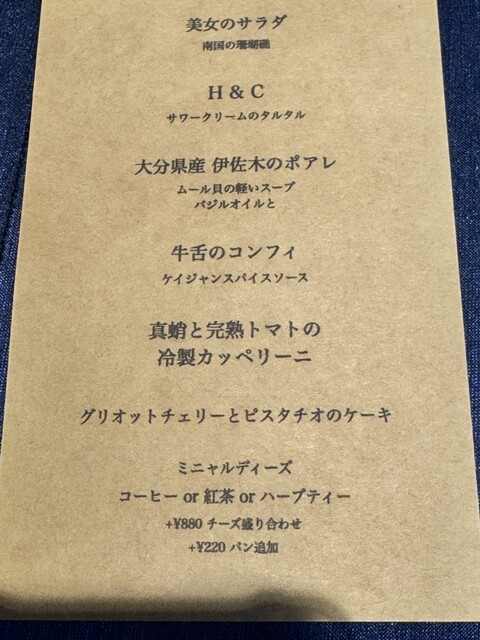 美女のサラダ
南国の珊瑚礁
H & C
サワークリームのタルタル
大分県産 伊佐木のポアレ
ムール貝の軽いスープ
バジルオイルと
牛舌のコンフィ
ケイジャンスパイスソース
真蛸と完熟トマトの
冷製カッペリーニ
グリオットチェリーとピスタチオのケーキ
ミニャルディーズ
コーヒー or 紅茶 or ハーブティー
+¥880 チーズ盛り合わせ
+¥220 パン追加